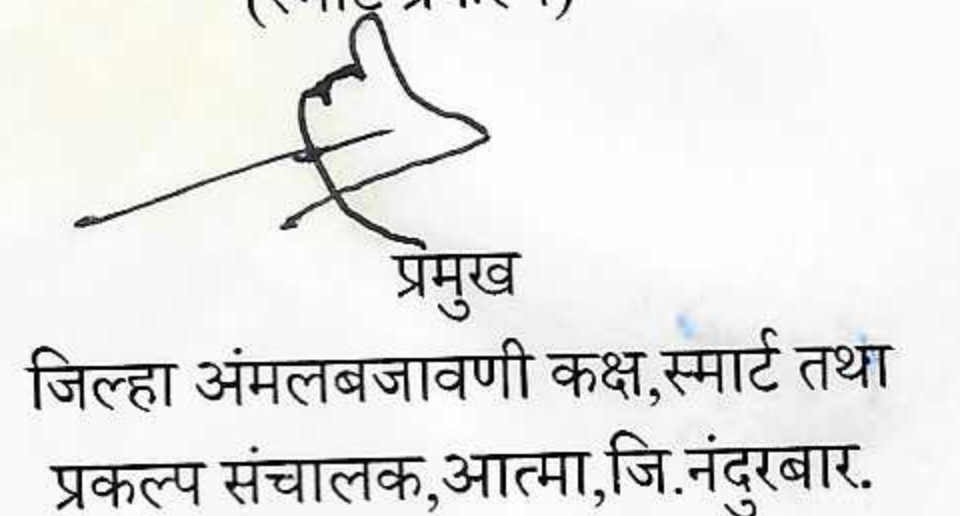 प्रमुख
जिल्हा अंमलबजावणी कक्ष,स्मार्ट तथा
प्रकल्प संचालक,आत्मा,जि.नंदुरबार.